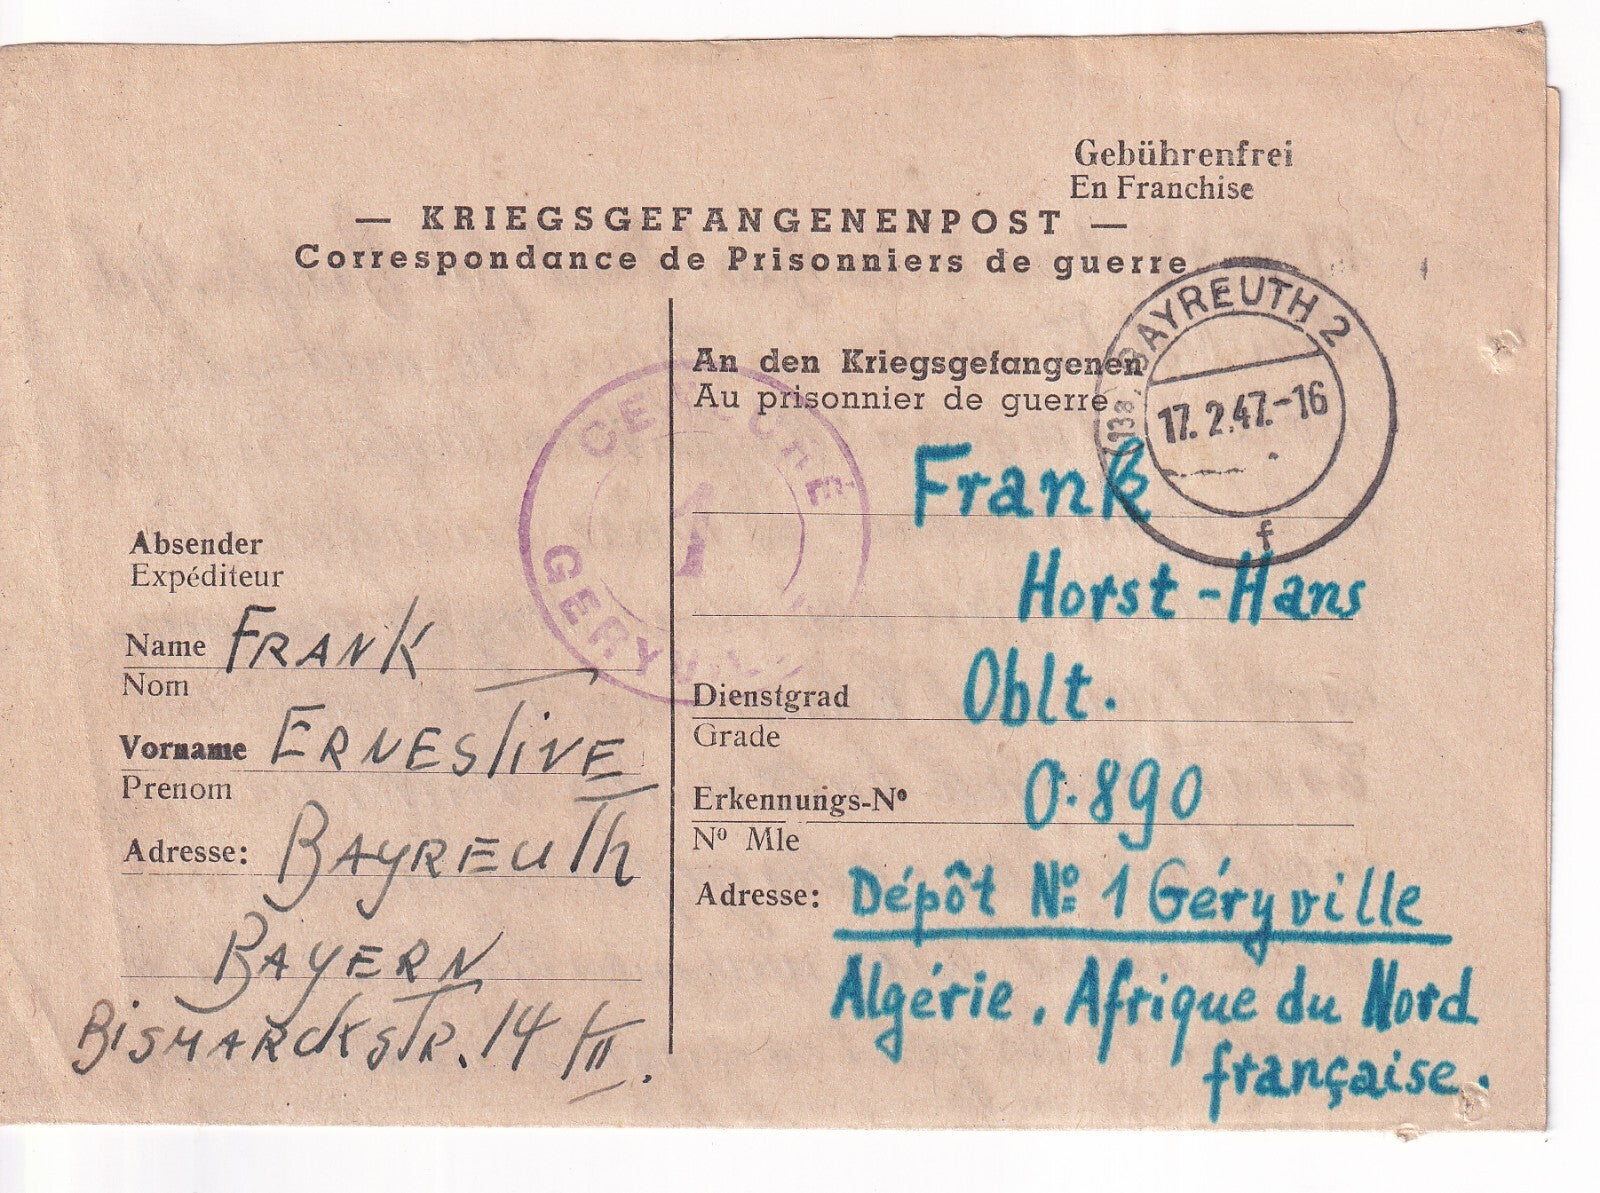 Gebührenfrei
En Franchise
— KRIEGSGEFANGENENPOST —
Correspondance de Prisonniers de guerre
BAYREUTH 2
17.2.47.-16
f
CENSURÉ
GERYVILLE
Absender
Expéditeur
Name FRANK
Nom
Vorname ERNESTINE
Prenom
Adresse: BAYREUTh
BAYERN
BISMARCKSTR. 14/III.
An den Kriegsgefangenen
Au prisonnier de guerre
Frank
Horst-Hans
Dienstgrad Oblt.
Grade
Erkennungs-Nº 0.890
Nº Mle
Adresse: Dépôt Nº 1 Géryville
Algérie. Afrique du Nord
française.